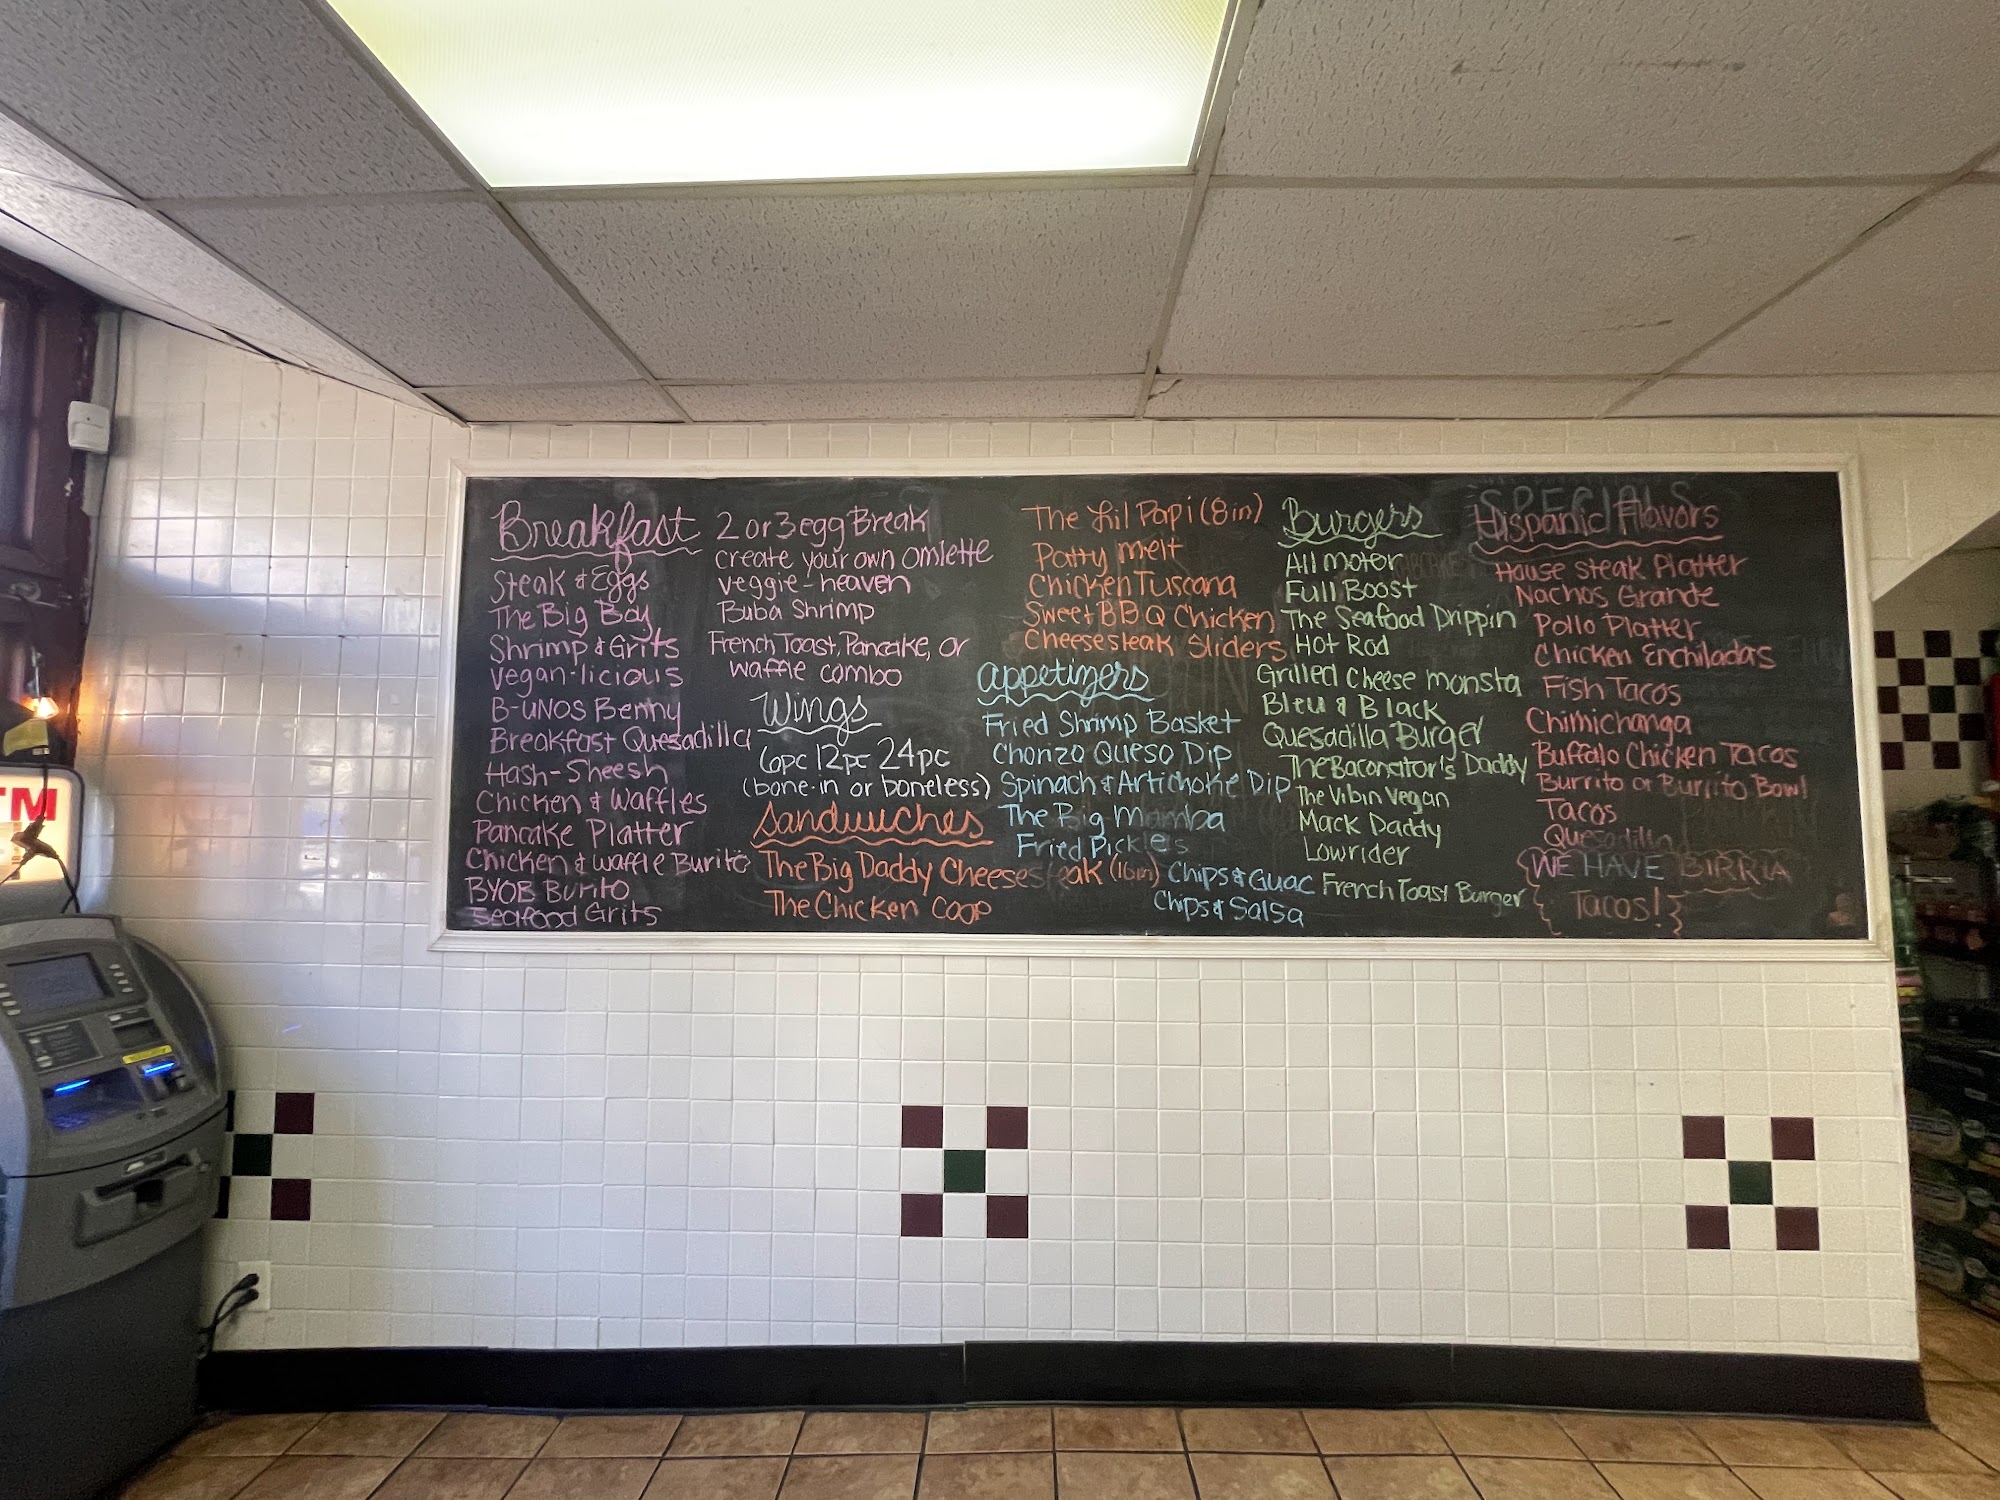 Breakfast
Steak & Eggs
The Big Boy
Shrimp & Grits
vegan-licious
B-UNOS Benny
Breakfast Quesadilla
Hash-Sheesh
Chicken & Waffles
Pancake Platter
Chicken & Waffle Burito
BYOB Burito
Seafood Grits
2 or 3 egg Break
create your own omlette
veggie-heaven
Buba Shrimp
French Toast, Pancake, or
waffle combo
Wings
6pc 12pc 24pc
(bone-in or boneless)
Sandwiches
The Big Daddy Cheesesteak (16in)
The Chicken Coop
The Lil Papi (8in)
Patty melt
Chicken Tuscana
Sweet BBQ Chicken
Cheesesteak Sliders
appetizers
Fried Shrimp Basket
Chorizo Queso Dip
Spinach & Artichoke Dip
The Big Mamba
Fried Pickles
Chips & Guac
Chips & Salsa
Burgers
All motor
Full Boost
The Seafood Drippin
Hot Rod
Grilled Cheese Monsta
Bleu & Black
Quesadilla Burger
The Baconator's Daddy
The Vibin Vegan
Mack Daddy
Lowrider
French Toast Burger
SPECIALS
Hispanic Flavors
House Steak Platter
Nachos Grande
Pollo Platter
Chicken Enchiladas
Fish Tacos
Chimichanga
Buffalo Chicken Tacos
Burrito or Burrito Bowl
Tacos
Quesadilla
WE HAVE BIRRIA
Tacos!
TM